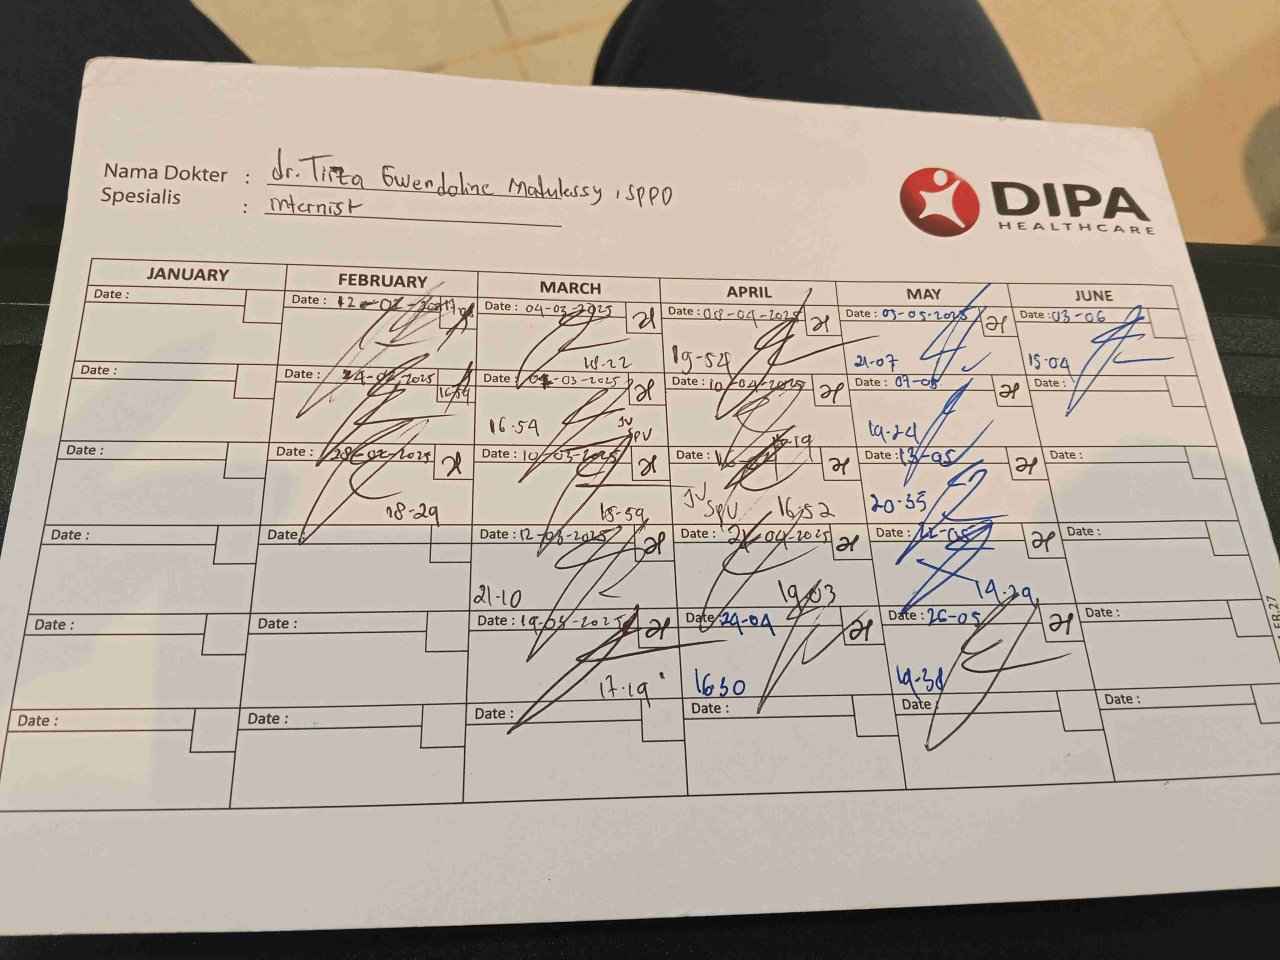 Nama Dokter : dr. Tirza Gwendoline Matulessy, SPPD
Spesialis : internist
DIPA
HEALTHCARE
JANUARY FEBRUARY MARCH APRIL MAY JUNE
Date : Date : 12-02-2025 Date : 04-03-2025 Date : 08-04-2025 Date : 05-05-2025 Date : 03-06
18-22 19-54 21-07 15-04
Date : Date : 24-02-2025 Date : 07-03-2025 Date : 10-04-2025 Date : 07-05 Date :
16-54 JV SPV 19-24
Date : Date : 28-02-2025 Date : 10-03-2025 Date : Date : 13-05 Date :
18-29 18-59 JV SPV 16-52 20-35
Date : Date : Date : 12-03-2025 Date : 21-04-2025 Date : 22-05 Date :
21-10 19-03 14-29
Date : Date : Date : 19-03-2025 Date : 24-04 Date : 26-05 Date :
17-19 1630 19-38
Date : Date : Date : Date : Date : Date :